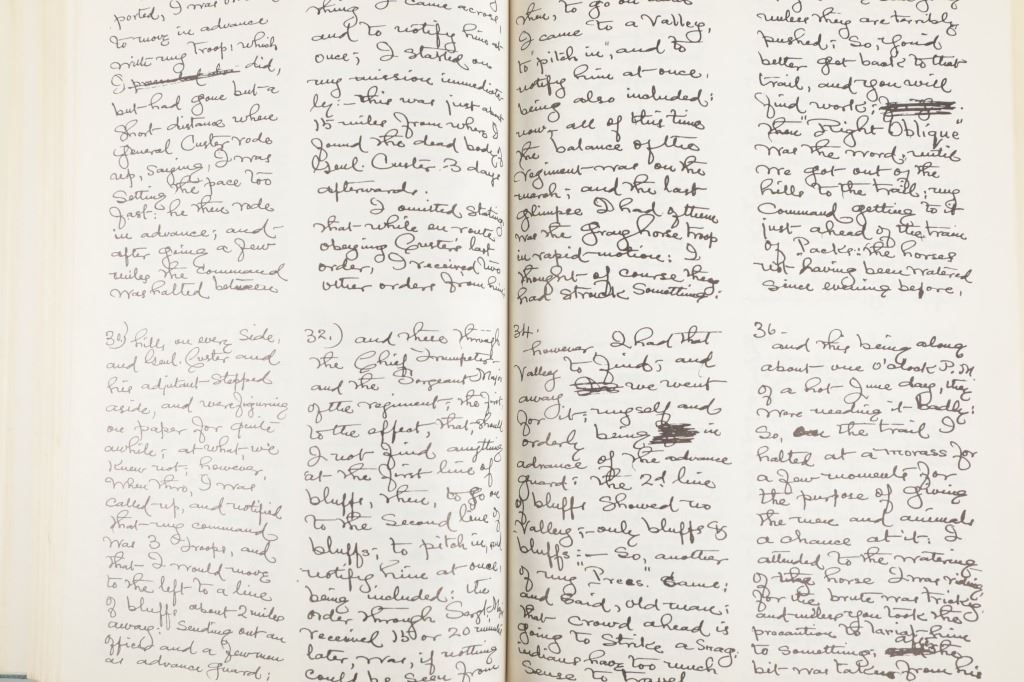 ported, I was
to move in advance
with my Troop; which
I did,
but had gone but a
short distance where
General Custer rode
up, saying, I was
Setting the pace too
fast: he then rode
in advance; and
after going a few
miles the command
was halted between
hills on every side,
and Genl. Custer and
his adjutant stepped
aside, and were figuring
on paper for quite
awhile; at what we
knew not; however,
when thro, I was
called up, and notified
that my command
was 3 Troops, and
that I would move
to the left to a line
of bluffs about 2 miles
away: Sending out an
officer and a few men
as advance guard;
thing I came across
and to notify him at
once; I started on
my mission immediate
ly:- this was just about
15 miles from where I
found the dead body of
Genl. Custer 3 days
afterwards.
I omitted stating
that while en-route
obeying Custer's last
order, I received two
other orders from him
32.) and these through
the Chief Trumpeter
and the Sergeant Major
of the regiment; the first
to the effect, that, should
I not find anything
at the first line of
bluffs, then, to go on
to the Second line of
bluffs; to pitch in, and
notify him at once:
being included: the
order through Sergt. Major
received 15 or 20 minutes
later, was, if nothing
could be seen from
then, to go on
I came to a Valley,
to "pitch in", and to
notify him at once,
being also included:
now, all of this time
the balance of the
regiment was on the
march; and the last
glimpse I had of them
was the Gray horse Troop
in rapid motion: I
thought of course they
had struck Something:
34.
however, I had that
Valley to find; and
away we went
for it; myself and
orderly being in
advance of the advance
guard: the 2d line
of bluffs Showed no
Valley;- only bluffs &
bluffs:- So, another
of my "Prees." Came;
and Said, old man;
that crowd ahead is
going to Strike a snag:
indians have too much
Sense to travel
unless they are terribly
pushed; So, you'd
better get back to that
trail, and you will
find work;
then "Right Oblique"
was the word, until
we got out of the
hills to the trail; my
Command getting to it
just ahead of the train
of Packs: the horses
not having been watered
Since evening before,
36.
and this being along
about one o'clock P.M.
of a hot June day, they
were needing it badly:
So, on the trail I
halted at a morass for
a few moments for
the purpose of giving
the men and animals
a chance at it: I
attended to the watering
of the horse I was riding
for the brute was tricky
and unless you took the
precaution to lariat him
to something; after the
bit was taken from his